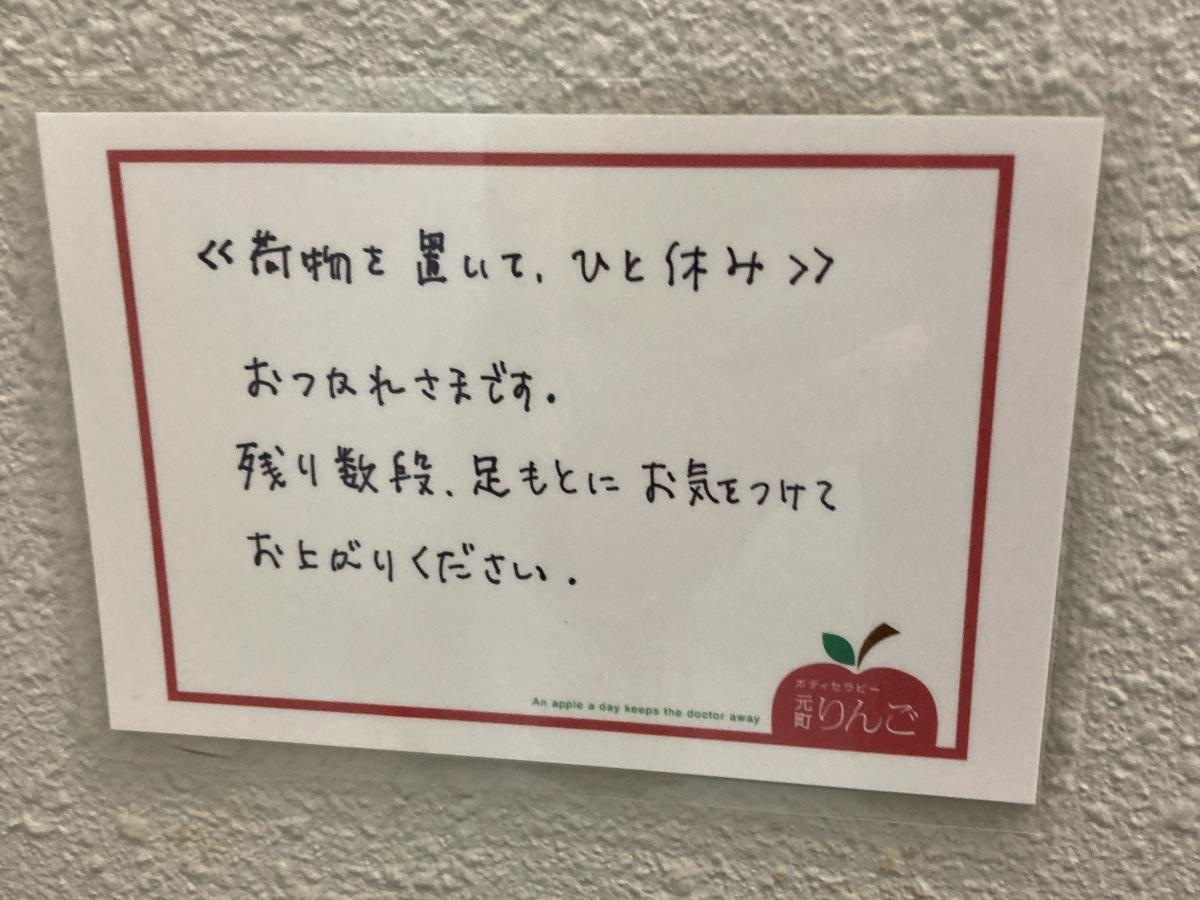 <<荷物を置いて、ひと休み>>
おつかれさまです。
残り数段、足もとにお気をつけて
お上がりください。
An apple a day keeps the doctor away
ボディセラピー
元町りんご